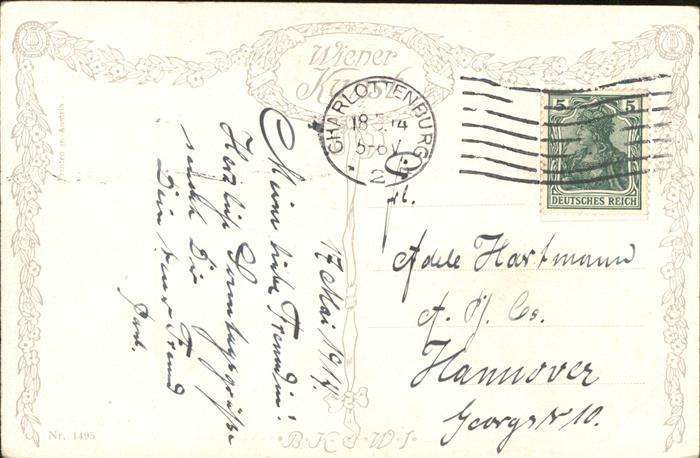 Wiener
Kunst
CHARLOTTENBURG
18.5.14
5-6 V
2
5 5
DEUTSCHES REICH
Printed in Austria
17 Mai 1914.
Meine liebe Freundin!
Herzliche Sonntagsgrüße
sendet Dir
Dein treuer Freund
Paul.
Frl.
Adele Hartmann
Hannover
Georgstr 10.
Nr. 1495
B.K.W.I.